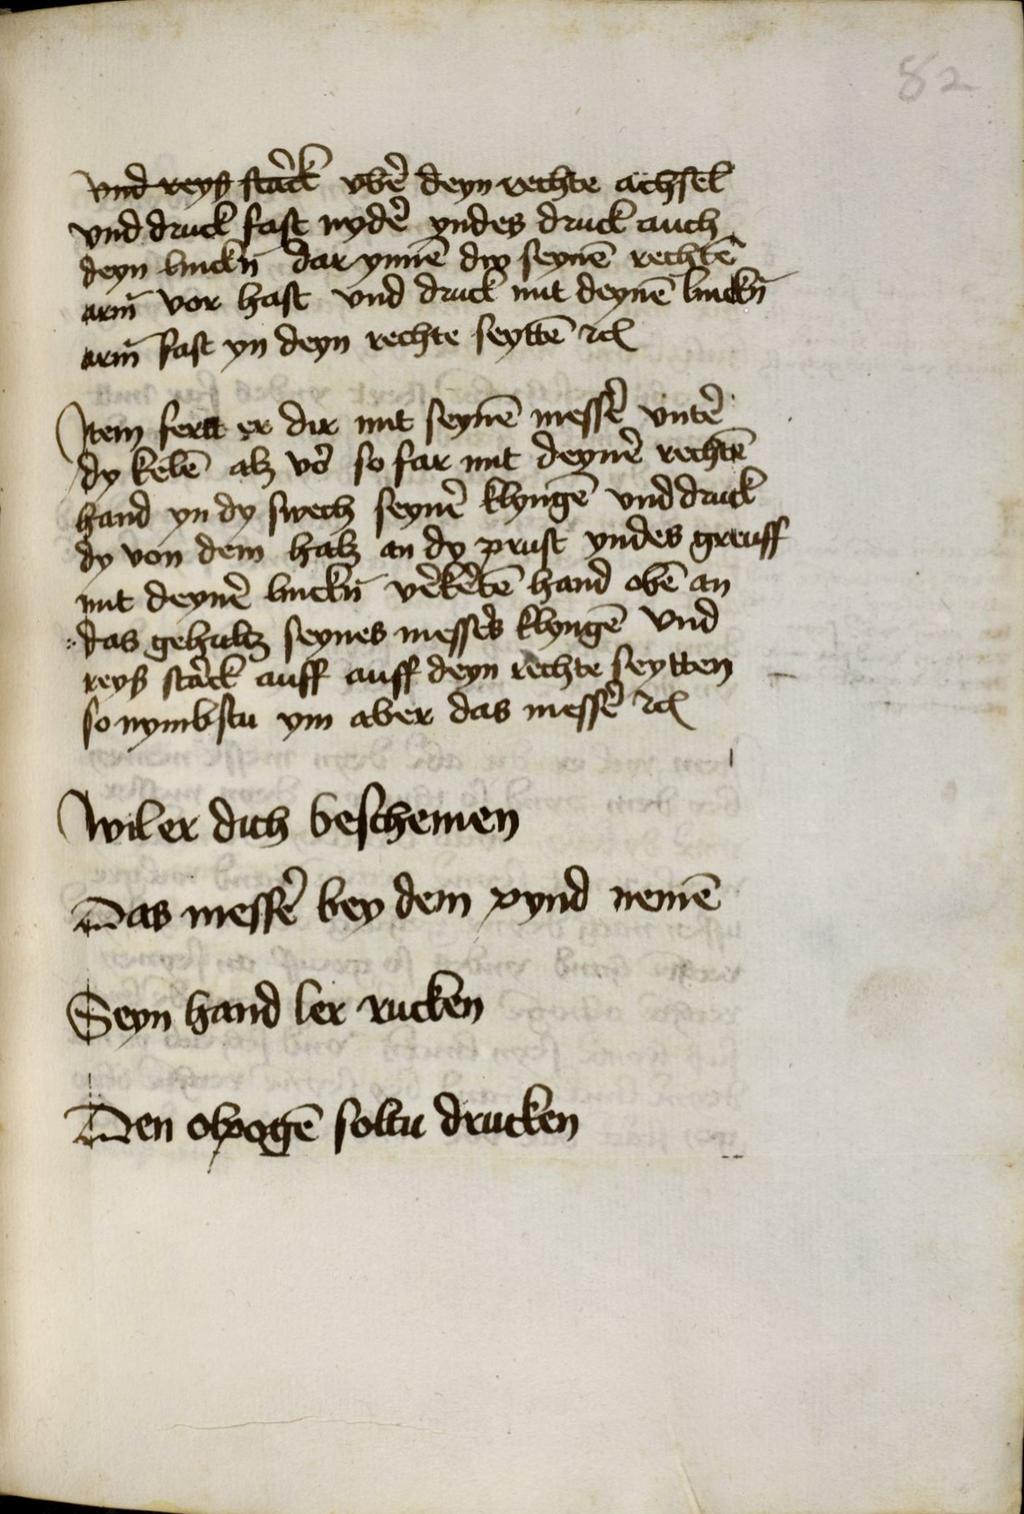 82
vnd reyß starck vbēr deyn rechte achsel
vnd druck fast nydēr yndes druck auch
deyn linckn̄ dar ynnē dw seynē rechtē
arm̄ vor hast vnd druck mit deynē linckn̄
arm̄ fast yn deyn rechte seyttē ꝛc
Item fertt er dir mit seynē messēr vntēr
dy kelē alz vēr so far mit deynēr rechtē
hand yn dy swech seynēr klyngē vnd druck
dy von dem halz an dy prust yndes greuff
mit deynēr linckn̄ vērkērtē hand obē an
das gehultz seynes messērs klyngē vnd
reyß stārck auff auff deyn rechte seytten
so nymbstu ym aber das messēr ꝛc
Wil er dich beschemen
Das messēr bey dem pynd nemē
Seyn hand ler rucken
Den olpogē soltu drucken